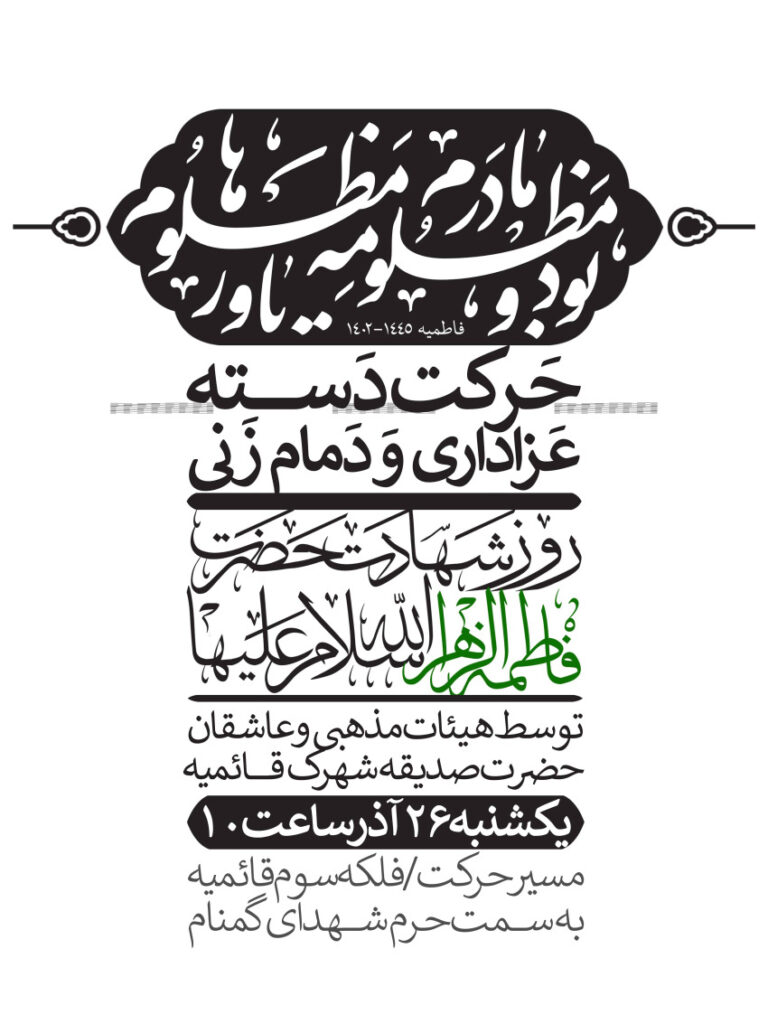 مادرم مظلومه بود و یاور مظلوم‌ها
فاطمیه ۱۴۴۵-۱۴۰۲
حَرکت دَسته
عَزاداری وَ دَمام زَنی
روز شهادت حضرت
فاطمة الزهرا سلام الله علیها
توسط هیئات مذهبی و عاشقان
حضرت صدیقه شهرک قائمیه
یکشنبه ۲۶ آذر ساعت ۱۰
مسیر حرکت/فلکه سوم قائمیه
به سمت حرم شهدای گمنام